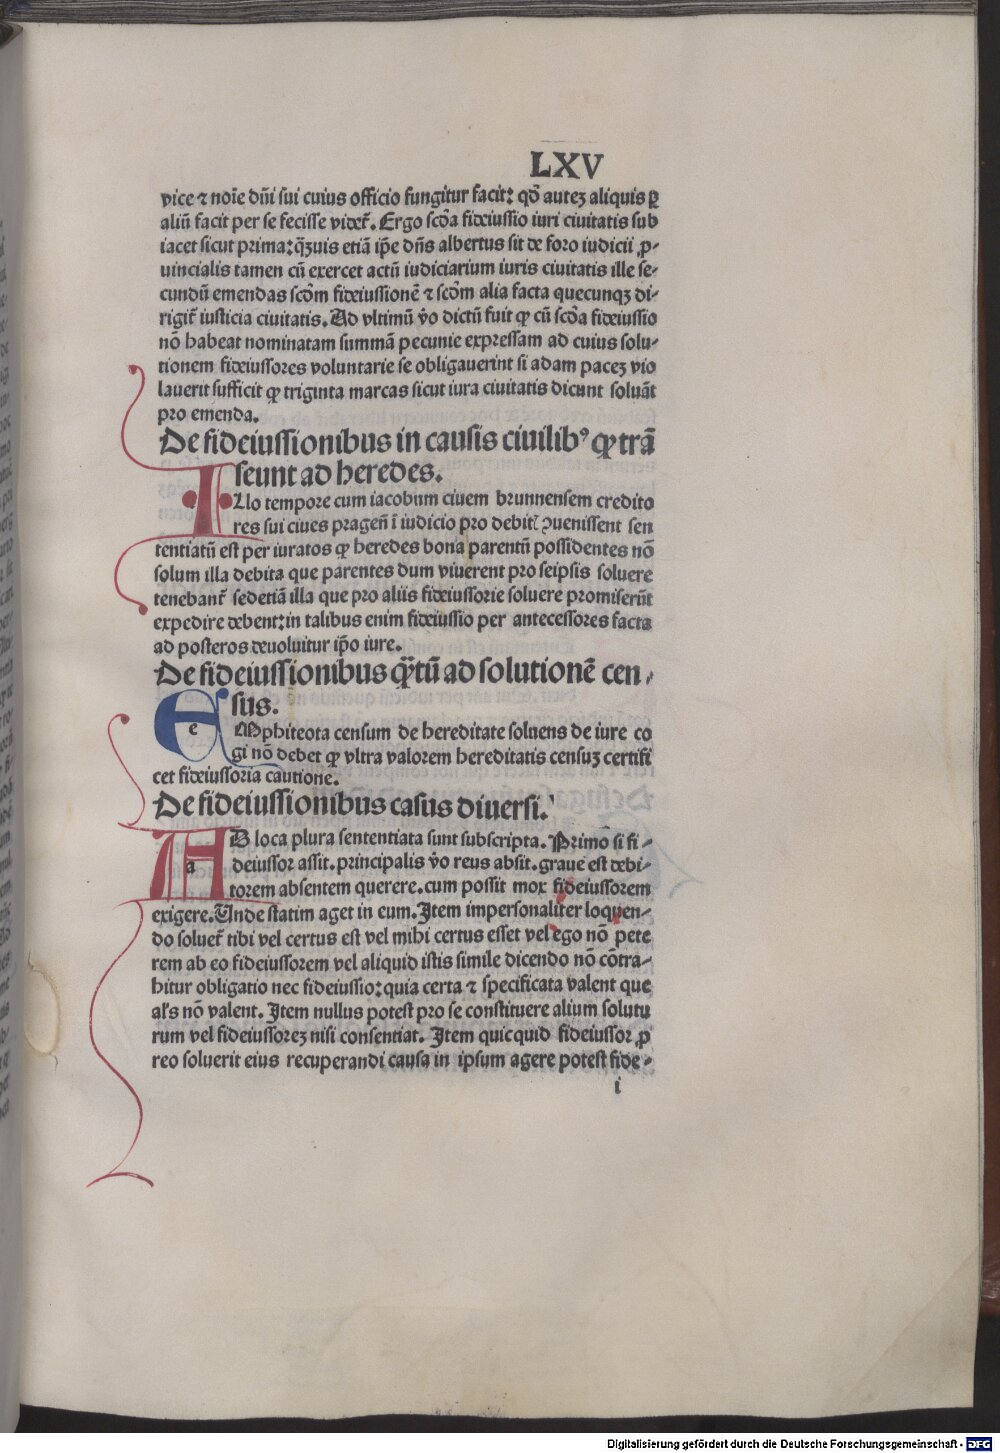 LXV
vice ⁊ noīe dn̄i sui cuius officio fungitur facit: qō auteʒ aliquis ꝑ
aliū facit per se fecisse videt̄. Ergo scd̄a fideiussio iuri ciuitatis sub
iacet sicut prima: q̄ʒuis etiā ip̄e dn̄s albertus sit de foro iudicii ꝓ-
uincialis tamen cū exercet actū iudiciarium iuris ciuitatis ille se-
cundū emendas scd̄m fideiussionē ⁊ scd̄m alia facta quecunqʒ di-
rigit̄ iusticia ciuitatis. Ad vltimū v̄o dictū fuit ꝙ cū scd̄a fideiussio
nō habeat nominatam summā pecunie expressam ad cuius solu-
tionem fideiussores voluntarie se obligauerint si adam paceʒ vio
lauerit sufficit ꝙ triginta marcas sicut iura ciuitatis dicunt soluāt
pro emenda.
De fideiussionibus in causis ciuilibꝰ ꝙ trā
seunt ad heredes.
I
Llo tempore cum iacobum ciuem brunnensem credito
res sui ciues pragen̄ ī iudicio pro debit̄ ꝯuenissent sen
tentiatū est per iuratos ꝙ heredes bona parentū possidentes nō
solum illa debita que parentes dum viuerent pro seipsis soluere
tenebant̄ sed etiā illa que pro aliis fideiussorie soluere promiserūt
expedire debent: in talibus enim fideiussio per antecessores facta
ad posteros deuoluitur ip̄o iure.
De fideiussionibus qͣ̄tū ad solutionē cen-
sus.
E
e
Mphiteota censum de hereditate soluens de iure co
gi nō debet ꝙ vltra valorem hereditatis censuʒ certifi
cet fideiussoria cautione.
De fideiussionibus casus diuersi.
A
a
B loca plura sententiata sunt subscripta. Primo si fi-
deiussor assit. principalis v̄o reus absit. graue est debi-
torem absentem querere. cum possit mox fideiussorem
exigere. Unde statim aget in eum. Item impersonaliter loquen-
do soluet̄ tibi vel certus est vel mihi certus esset vel ego nō pete
rem ab eo fideiussorem vel aliquid istis simile dicendo nō cōtra-
hitur obligatio nec fideiussio: quia certa ⁊ specificata valent que
al's nō valent. Item nullus potest pro se constituere alium solutu
rum vel fideiussoreʒ nisi consentiat. Item quicquid fideiussor ꝓ
reo soluerit eius recuperandi causa in ipsum agere potest fide-
i
Digitalisierung gefördert durch die Deutsche Forschungsgemeinschaft - DFG